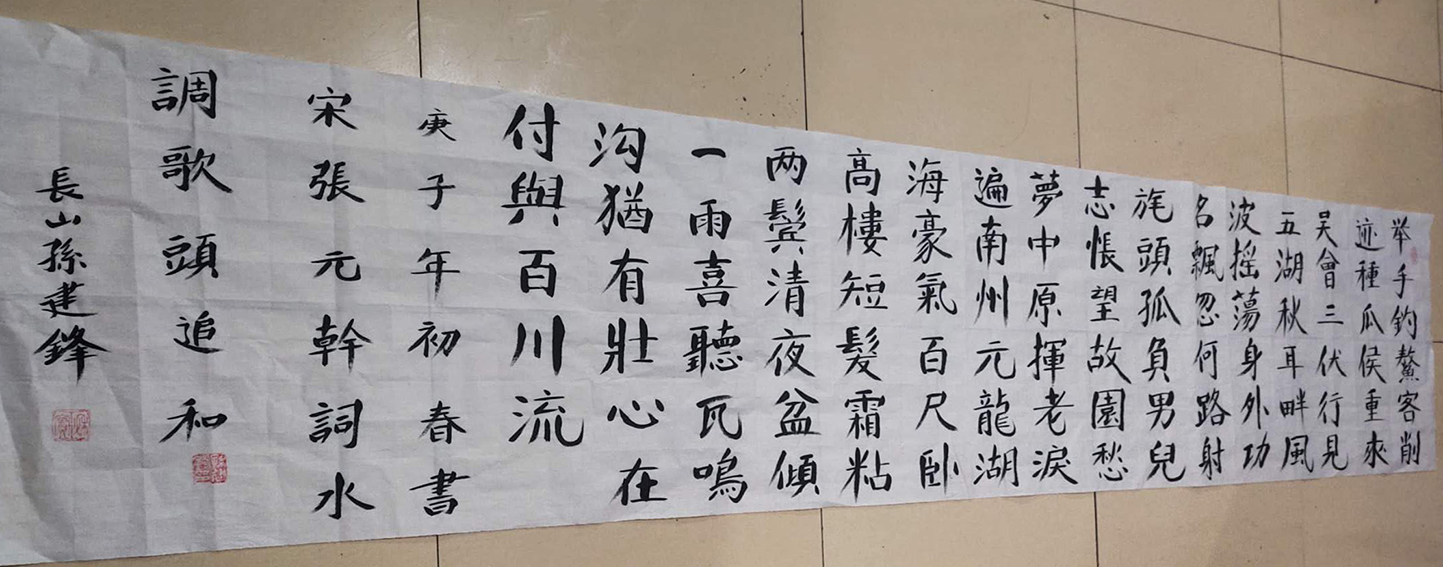 举手钓鳌客削
迹種瓜侯重來
吴會三伏行見
五湖秋耳畔風
波摇蕩身外功
名飄忽何路射
旄頭孤負男兒
志悵望故園愁
夢中原揮老淚
遍南州元龍湖
海豪氣百尺卧
高樓短髮霜粘
两鬓清夜盆傾
一雨喜聽瓦鳴
沟猶有壯心在
付與百川流
庚子年初春書
宋張元幹詞水
調歌頭追和
長山孫建鋒